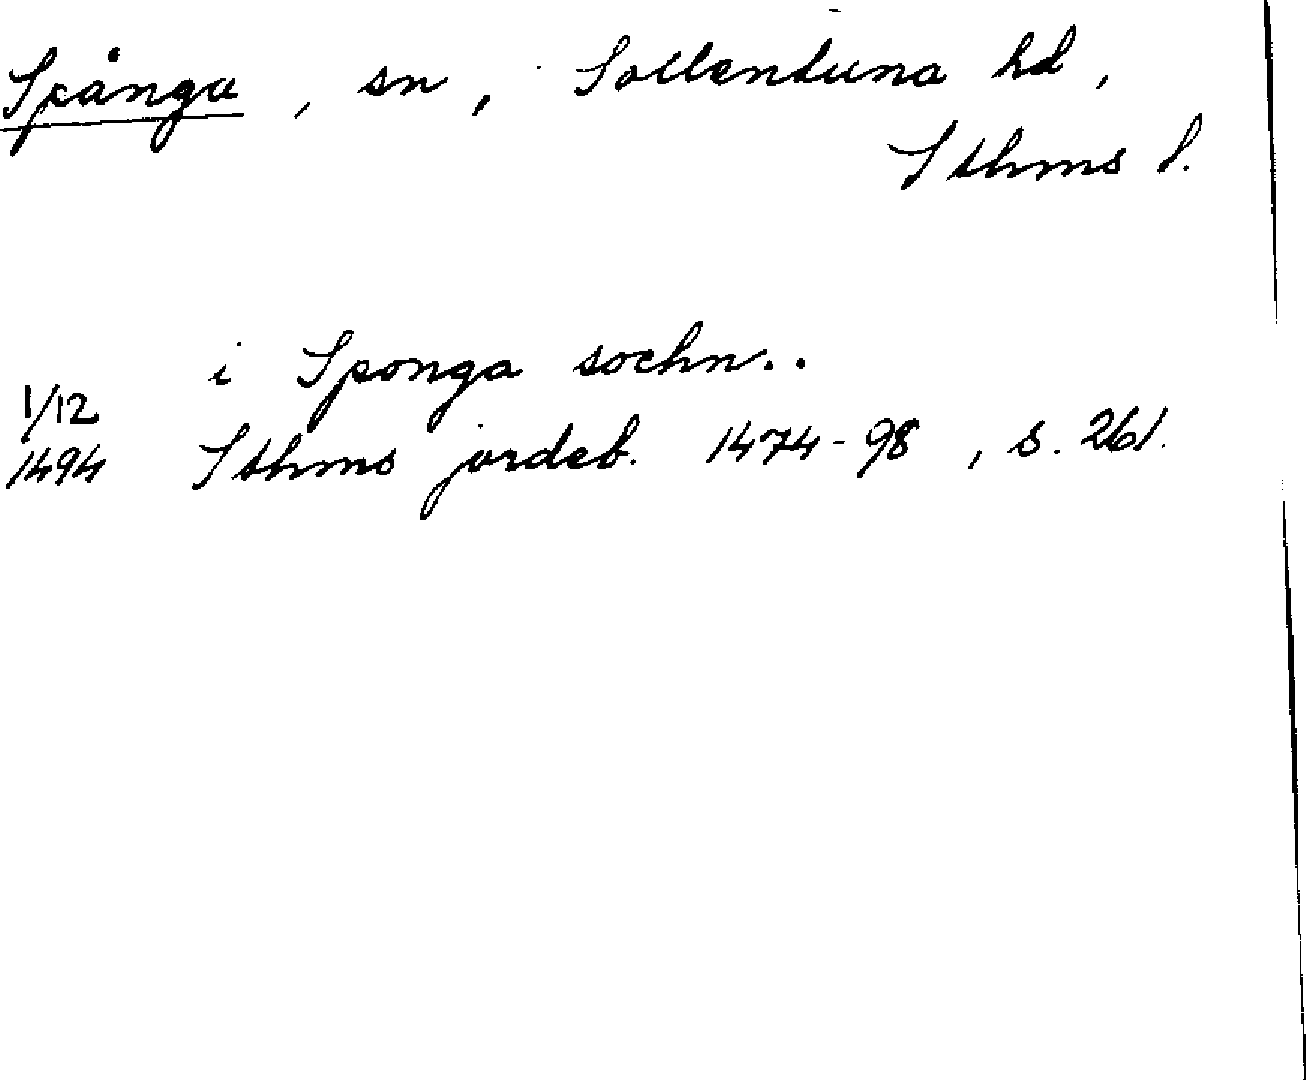 Spånga, sn, Sollentuna hd,
Sthms l.
i Sponga sochn..
1/12
1494 Sthms jordeb. 1474-98, s. 261.